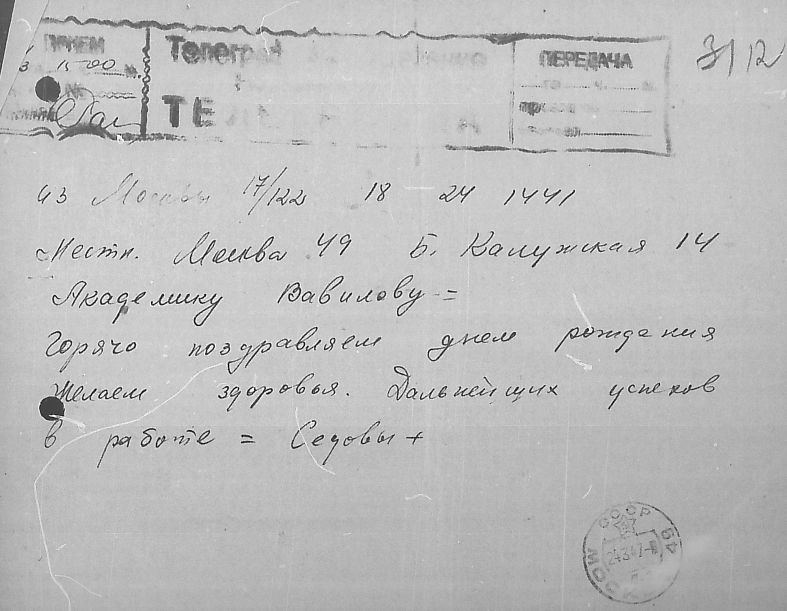 ПРИЕМ
15 00
Телеграф
ТЕ
ПЕРЕДАЧА
3/12
из Москвы 17/122 18 24 1441
Местн. Москва 49 Б. Калужская 14
Академику Вавилову =
Горячо поздравляем днем рождения
Желаем здоровья. Дальнейших успехов
в работе = Седовы +
СССР
МОСК
24347